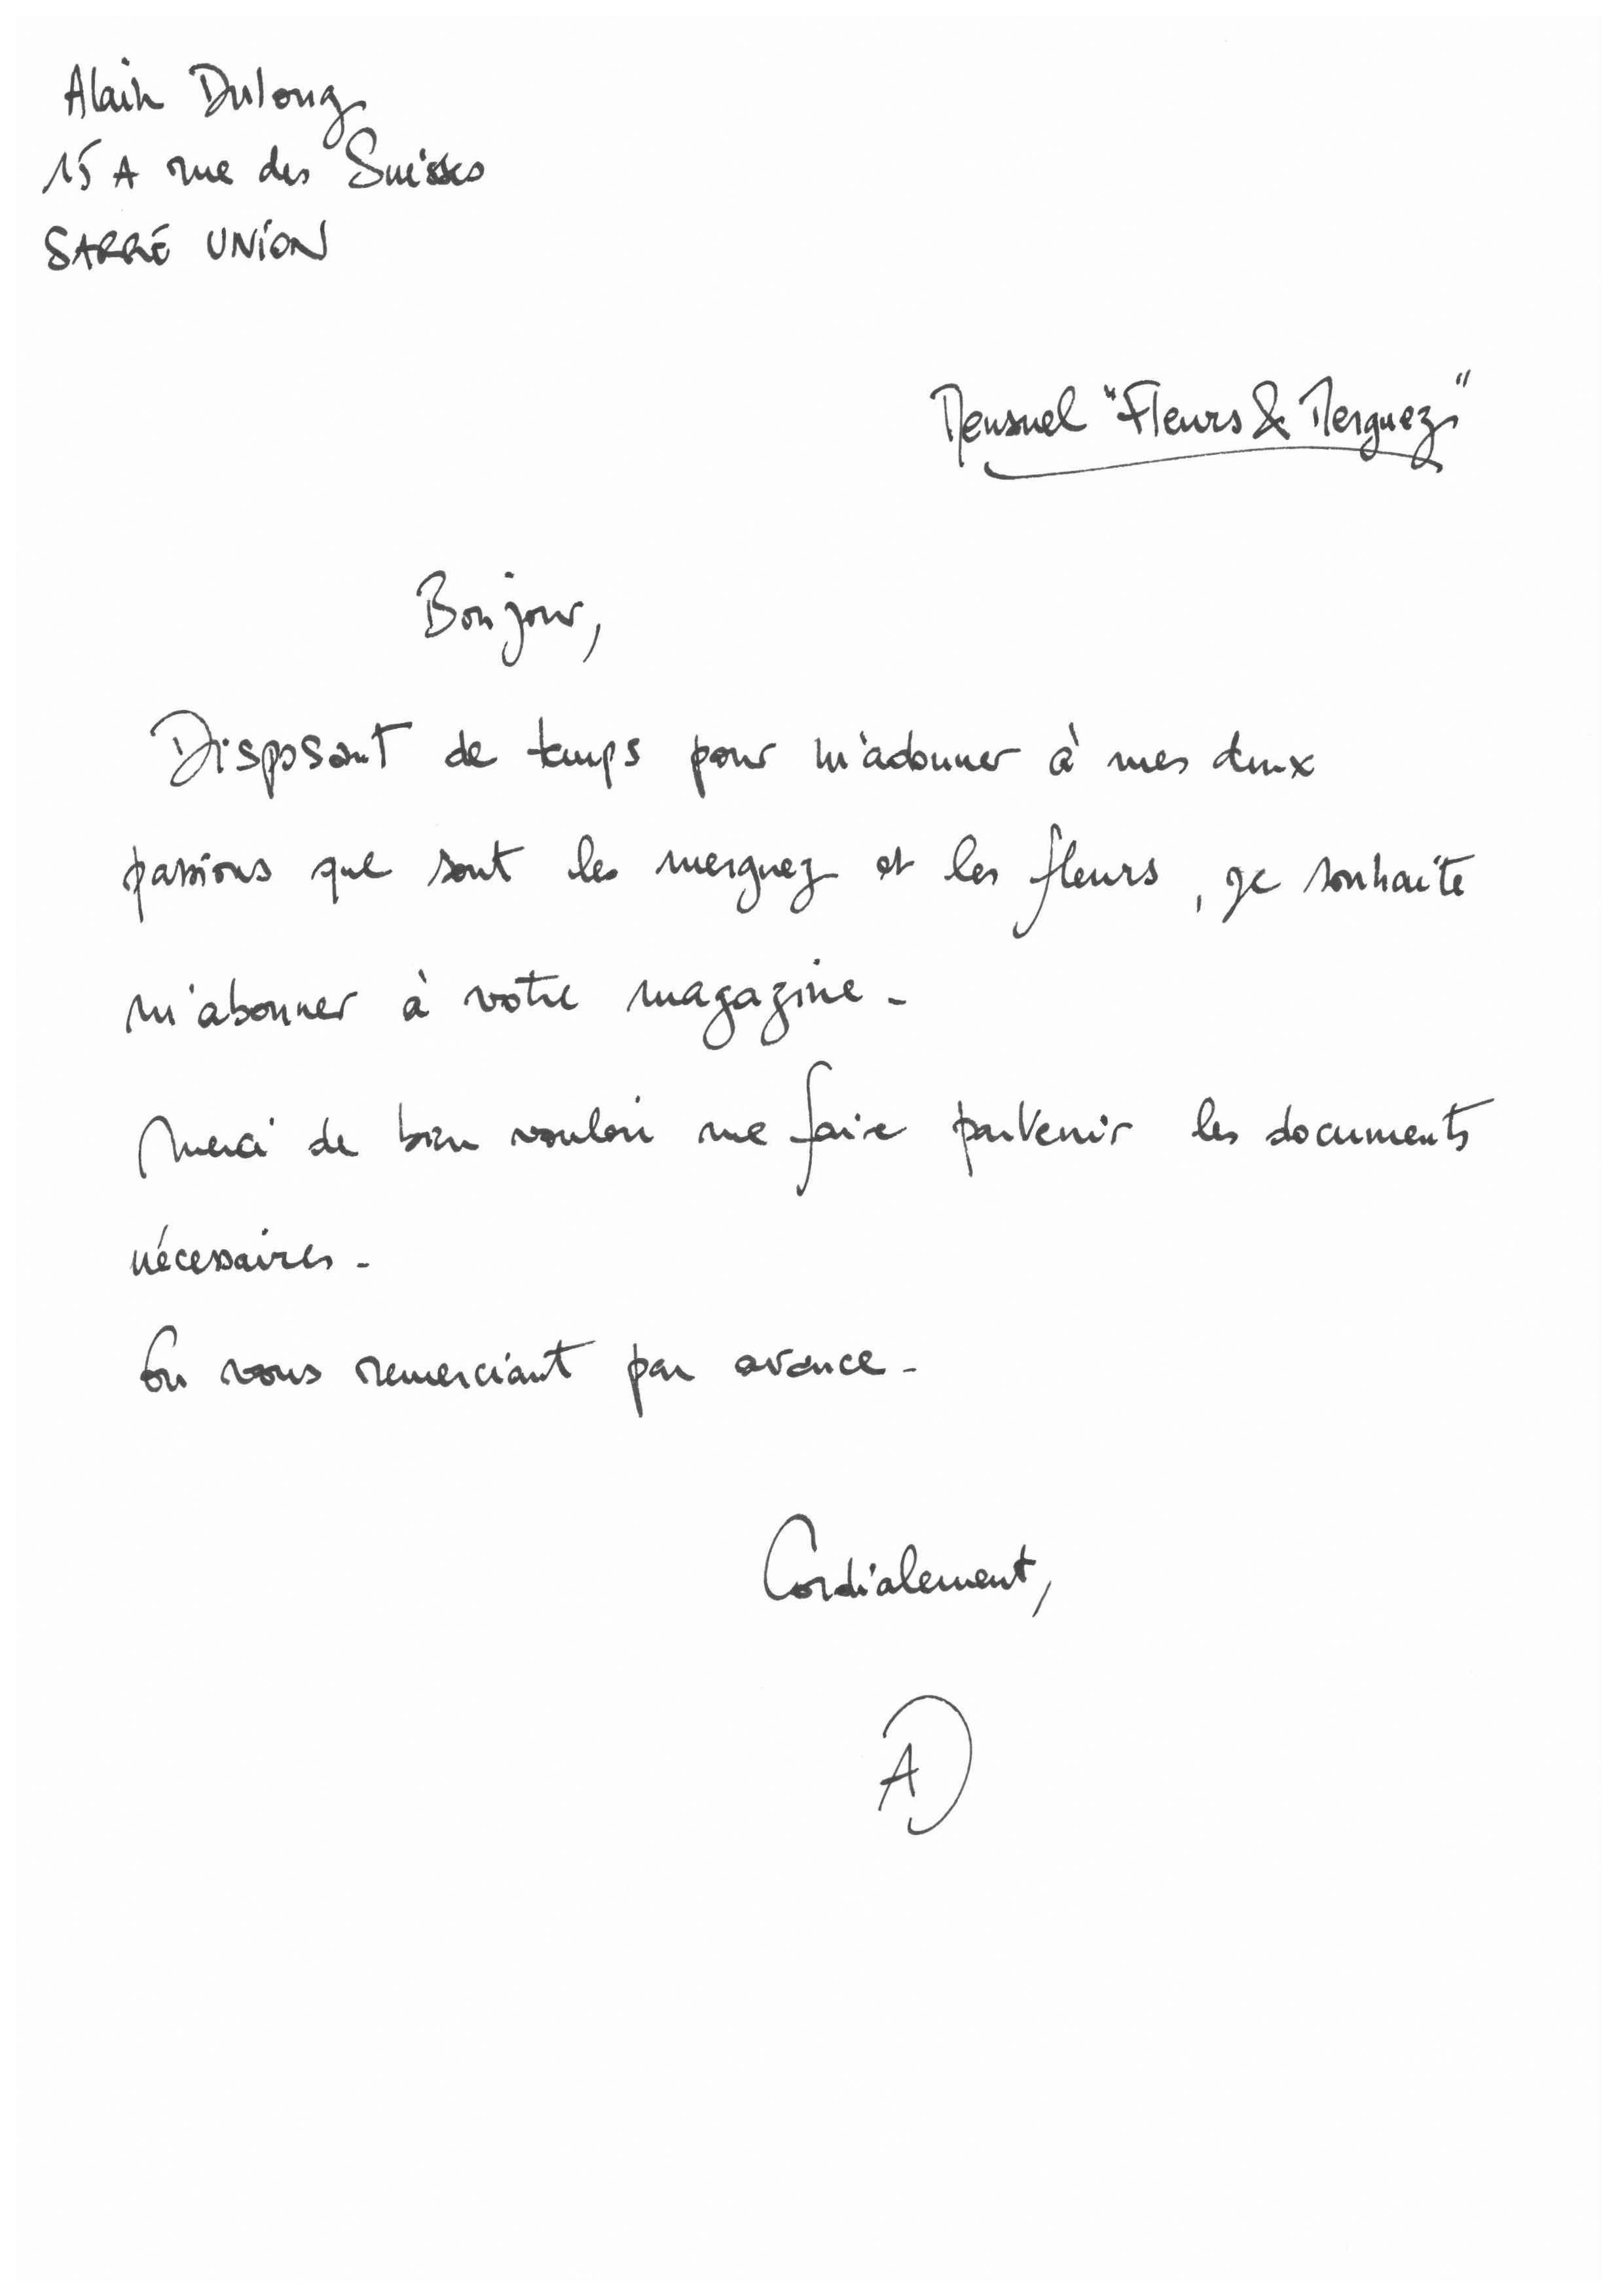 Alain Dulong
15 A rue des Suisses
SARRE UNION
Mensuel "Fleurs & Merguez"
Bonjour,
Disposant de temps pour m'adonner à mes deux
passions que sont les merguez et les fleurs, je souhaite
m'abonner à votre magazine.
Merci de bien vouloir me faire parvenir les documents
nécessaires.
En vous remerciant par avance.
Cordialement,
AD